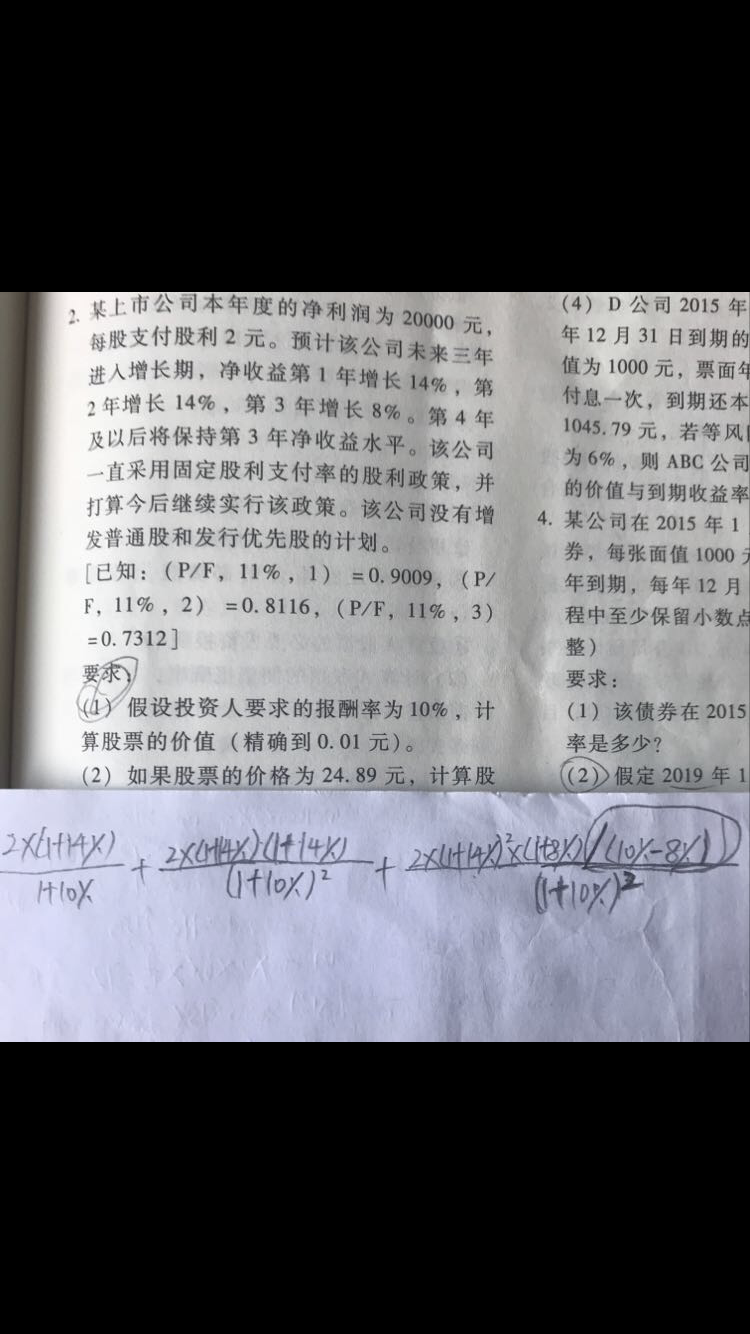 2. 某上市公司本年度的净利润为 20000 元，
每股支付股利 2 元。预计该公司未来三年
进入增长期，净收益第 1 年增长 14%，第
2 年增长 14%，第 3 年增长 8%。第 4 年
及以后将保持第 3 年净收益水平。该公司
一直采用固定股利支付率的股利政策，并
打算今后继续实行该政策。该公司没有增
发普通股和发行优先股的计划。
[已知：(P/F，11%，1) =0.9009，(P/
F，11%，2) =0.8116，(P/F，11%，3)
=0.7312]
要求：
(1) 假设投资人要求的报酬率为 10%，计
算股票的价值（精确到 0.01 元）。
(2) 如果股票的价格为 24.89 元，计算股
(4) D 公司 2015 年
年 12 月 31 日到期的
值为 1000 元，票面年
付息一次，到期还本
1045.79 元，若等风
为 6%，则 ABC 公司
的价值与到期收益率
4. 某公司在 2015 年 1
券，每张面值 1000
年到期，每年 12 月
程中至少保留小数点
整）
要求：
(1) 该债券在 2015
率是多少？
(2) 假定 2019 年 1
2×(1+14%) + 2×(1+14%)×(1+14%) + 2×(1+14%)²×(1+8%) /(10%-8%)
1+10% (1+10%)² (1+10%)²